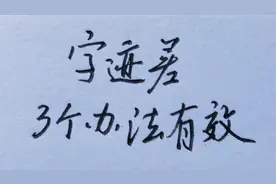 字迹差
3个办法有效